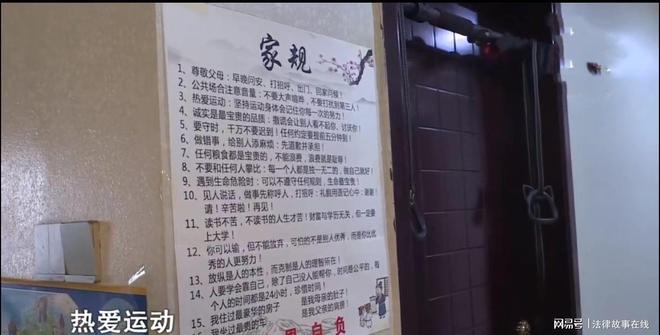 家规
1、尊敬父母：早晚问安、打招呼、出门、回家问候！
2、公共场合注意音量：不要大声喧哗，不要打扰到第三人！
3、热爱运动：坚持运动身体会记住你每一次的努力！
4、诚实是最宝贵的品质：撒谎会让别人看不起你、讨厌你！
5、要守时，千万不要迟到！任何约定要提前五分钟到！
6、做错事，给别人添麻烦：先道歉并承担！
7、任何粮食都是宝贵的，不能浪费，浪费就是耻辱！
8、不要和任何人攀比：每一个人都是独一无二的，做自己就好！
9、遇到生命危险时：可以不遵守任何规则，生命最宝贵！
10、见人说话，做事先称呼人，打招呼：礼貌用语记心中：谢谢！
请！辛苦啦！再见！
11、读书不苦，不读书的人生才苦！财富与学历无关，但一定要
上大学！
12、你可以输，但不能放弃，可怕的不是别人优秀，而是你比优
秀的人更努力！
13、放纵是人的本性，而克制是人的理智所在！
14、人要学会靠自己，除了自己没人能帮你，时间是公平的，每
个人的时间都是24小时，珍惜时间！
15、我住过最豪华的房子 是我母亲的肚子！
我坐过最贵的车 是我父亲的肩膀！
自负
热爱运动
网易号 | 法律故事在线